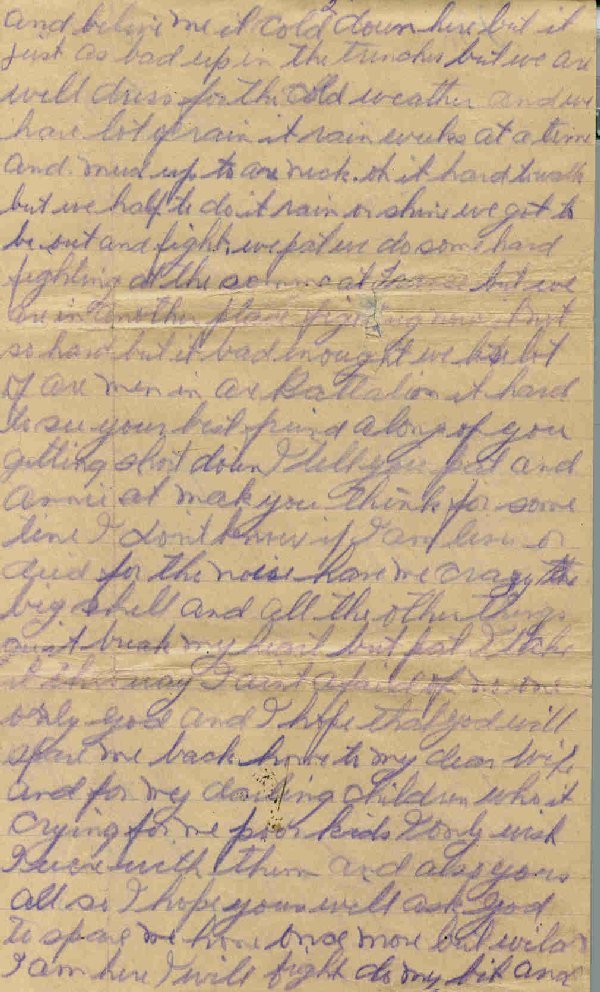 and believe me it cold down here but it
just as bad up in the trenches but we are
well dress for the cold weather and we
have lot of rain it rain weeks at a time
and mud up to are neck oh it hard
but we half to do it rain or shine we got to
be out and fight we pat we do some hard
fighting at the somme at but we
are in another place fighting now. but
so hard but it bad enought we lose lot
of are men in are Battalion it hard
to see your best friend along of you
getting shot down I tell you pat and
annie at make you think for some
time I don't know if I am live or
died for the noise have me crazy the
big shell and all the other things
just break my heart but pat I take
it this way I aint afraid of no one
only god and I hope that god will
spare me back home to my dear Wife
and for my darling children who it
crying for me poor kids I only wish
I were with them and also yours
all so I hope yours will ask God
to spare me home once more but
I am here I will fight do my bit and